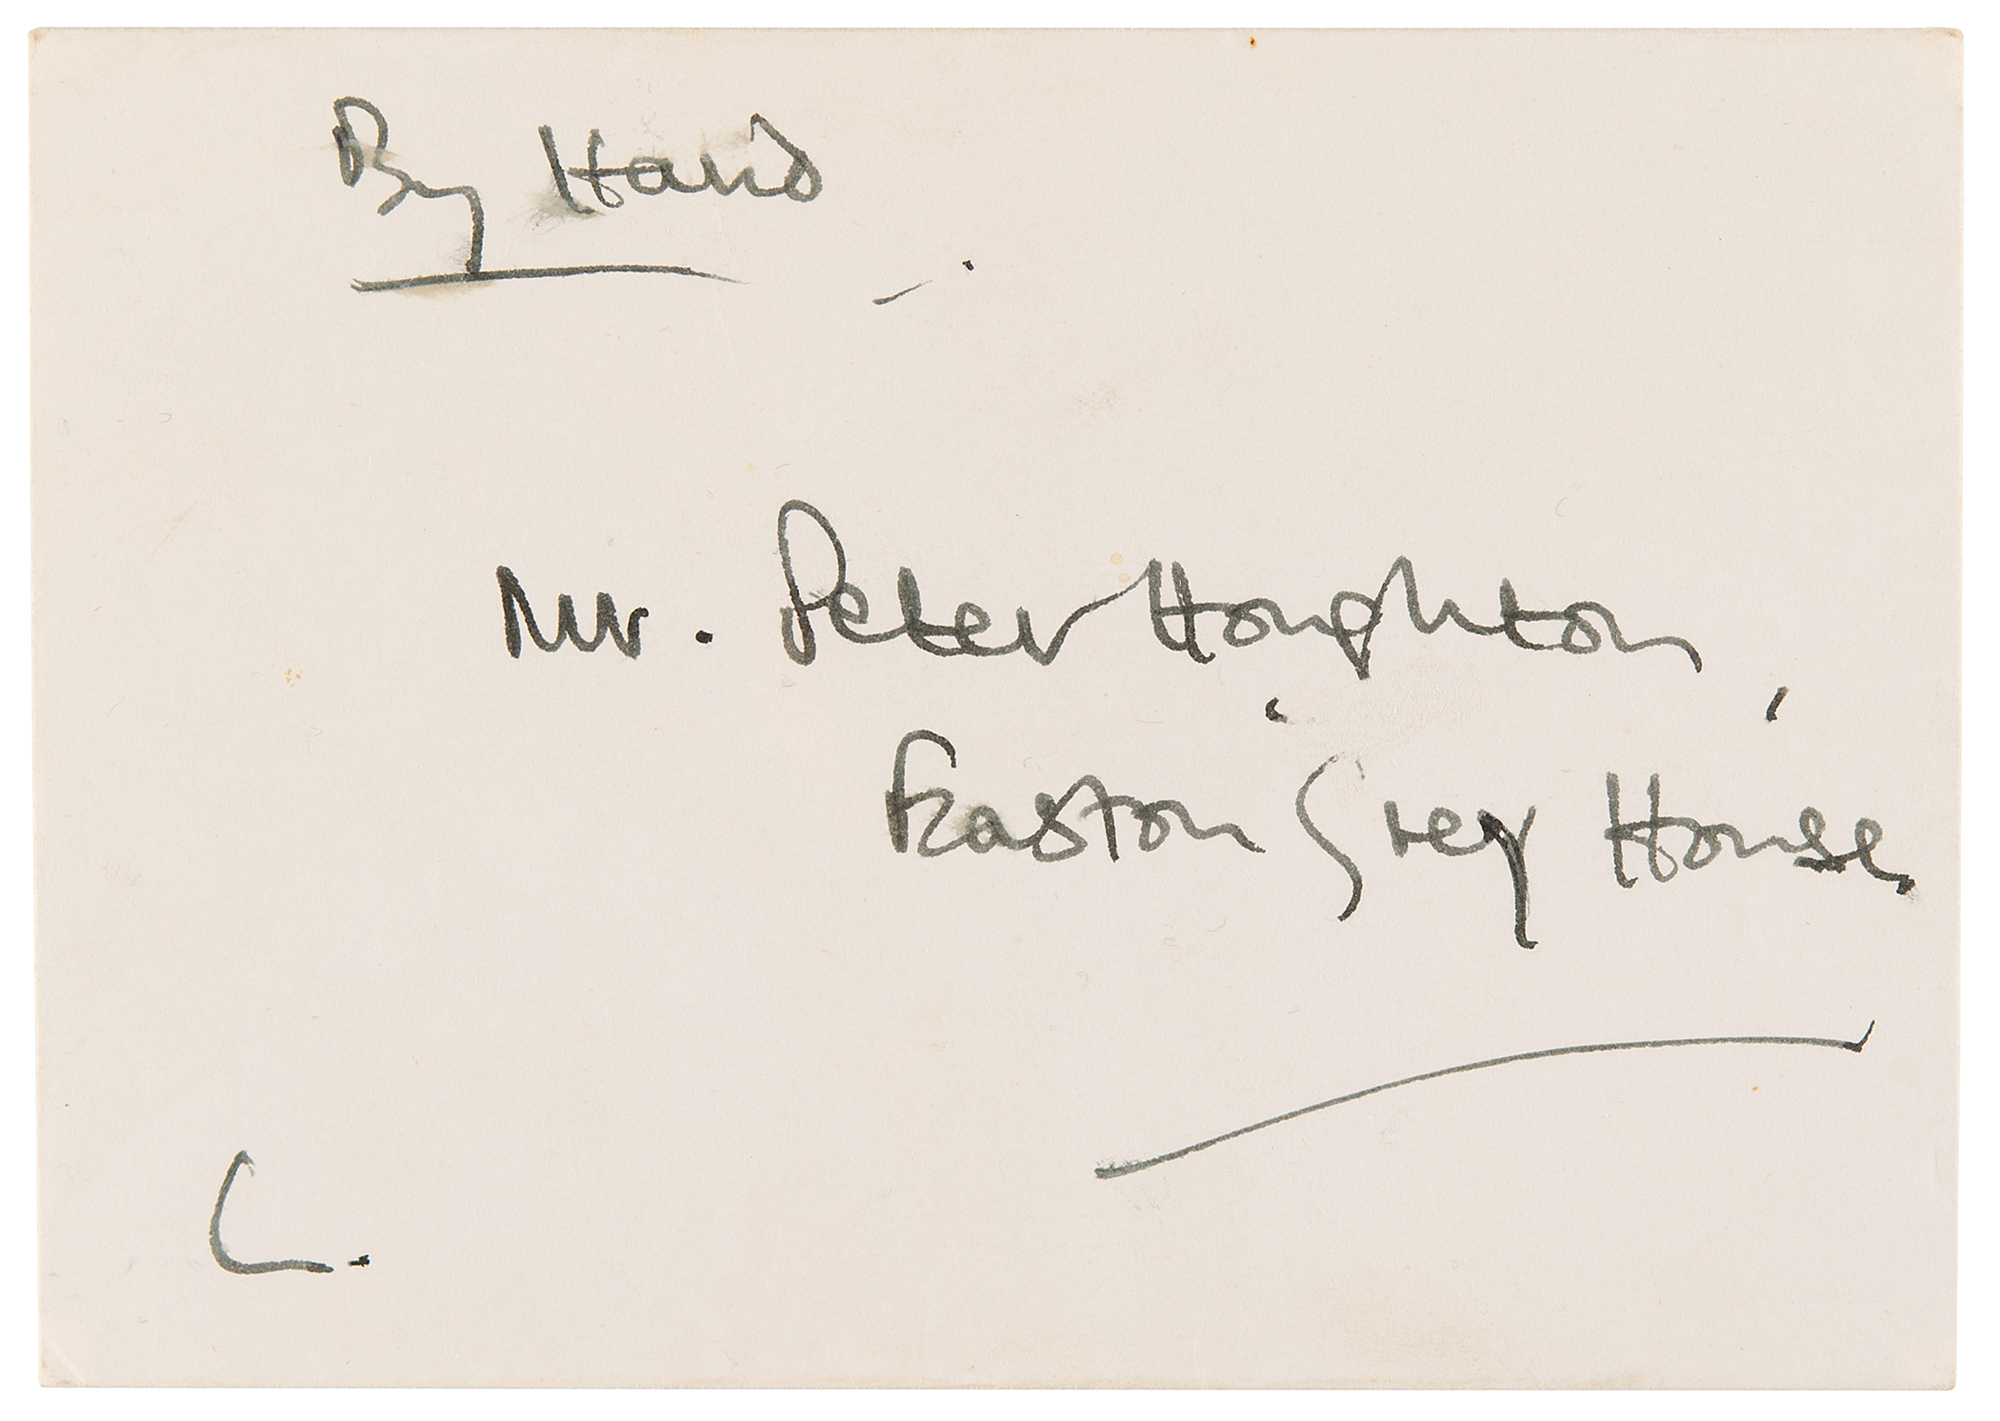 By Hand
Mr. Peter Houghton,
Easton Grey House
C.